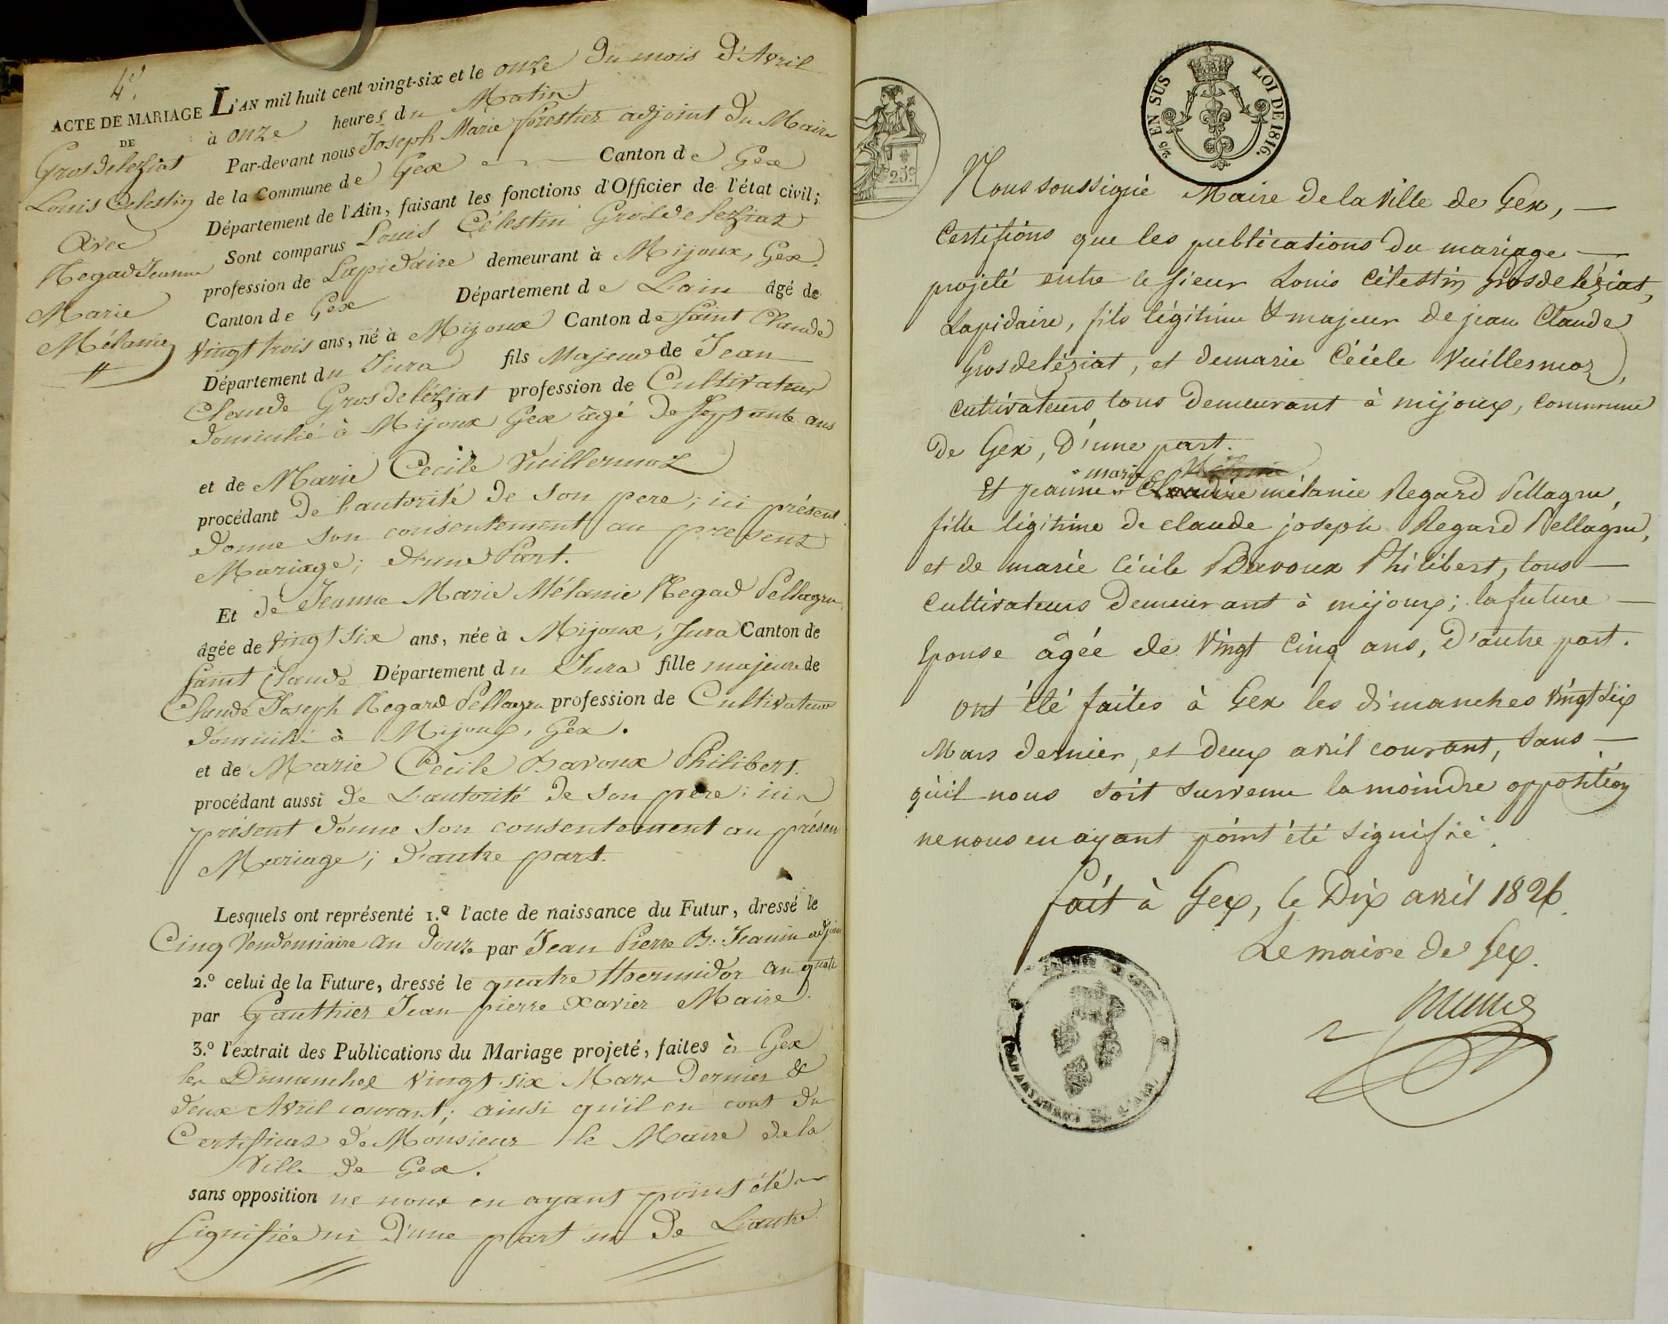 4e.
ACTE DE MARIAGE
DE
Grosdeléziat
Louis Celestin
Avec
Regad Jeanne
Marie
Mélanie
L'AN mil huit cent vingt-six et le onze du mois d'Avril
à onze heures du Matin
Par-devant nous Joseph Marie forestier adjoint du Maire
de la Commune de Gex Canton de Gex
Département de l'Ain, faisant les fonctions d'Officier de l'état civil;
Sont comparus Louis Célestin Grosdeleziat
profession de Lapidaire demeurant à Mijoux, Gex.
Canton de Gex Département de Lain âgé de
Vingt trois ans, né à Mijoux Canton de Saint Claude
Département du Jura fils Majeur de Jean
Claude Grosdeléziat profession de Cultivateur
domicilié à Mijoux Gex agé de Septante ans
et de Marie Cecile Vuillermoz
procédant de l'autorité de son pere; ici présent
donne son consentement au present
Mariage; d'une Part.
Et de Jeanne Marie Mélanie Regad Pellagru
âgée de vingt six ans, née à Mijoux, Jura Canton de
Saint Claude Département du Jura fille majeure de
Claude Joseph Regard Pellagru profession de Cultivateur
domicilié à Mijoux, Gex.
et de Marie Cecile Bavoux Philibert.
procédant aussi de L'autorité de son père; ici
présent donne son consentement au présent
Mariage; d'autre part.
Lesquels ont représenté 1.º l'acte de naissance du Futur, dressé le
Cinq Vendemiaire an douze par Jean Pierre B. Jeanin adjoin
2.º celui de la Future, dressé le quatre thermidor an quatr
par Gauthier Jean pierre Xavier Maire.
3.º l'extrait des Publications du Mariage projeté, faites à Gex
les Dimanches vingt-six Mars dernier &
deux Avril courant; ainsi qu'il en conste du
Certificat de Monsieur le Maire de la
Ville de Gex.
sans opposition ne nous en ayant point été
signifiée ni d'une part ni de L'autre
25c
2/5 EN SUS
LOI DE 1816.
Nous soussigné Maire de la Ville de Gex,
Certifions que les publications du mariage
projeté entre le sieur Louis Célestin Grosdeléziat,
Lapidaire, fils légitime & majeur de jean Claude
Grosdeléziat, et de marie Cécile Vuillermoz,
cultivateurs tous demeurant à mijoux, commune
de Gex, D'une part.
marie
Et jeanne mélanie Regard Pellagru,
fille légitime de claude joseph Regard Pellagru,
et de marie Cécile Bavoux Philibert, tous
cultivateurs demeurant à mijoux; la future
Epouse âgée de vingt cinq ans, D'autre part.
ont été faites à Gex les dimanches vingt six
Mars dernier, et deux avril courant, sans
qu'il nous soit survenu la moindre opposition
ne nous en ayant point été signifié.
fait à Gex, le Dix avril 1826.
Le maire de Gex.
DÉPARTEMENT DE L'AIN